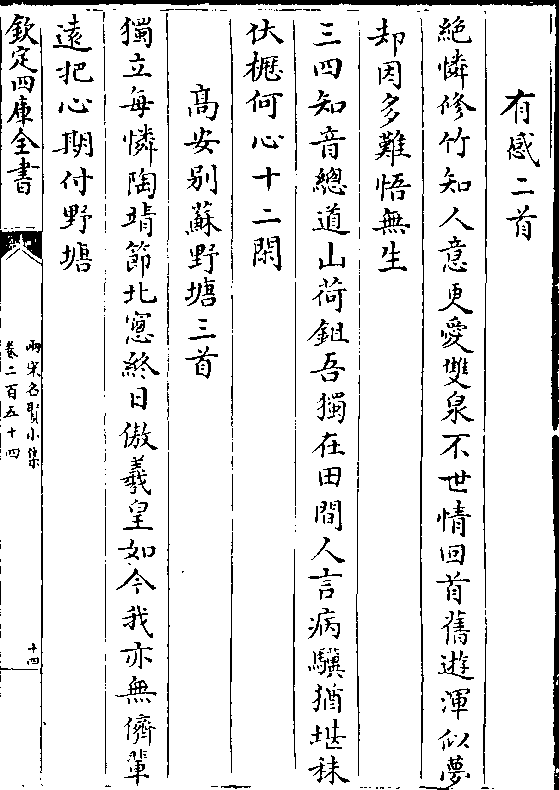 有感二首
絶憐修竹知人意更愛雙泉不世情回首舊遊渾似夢
却因多難悟無生
三四知音總道山荷鉏吾獨在田間人言病驥猶堪秣
伏櫪何心十二閑
高安别蘇野塘三首
獨立每憐陶靖節北窻終日傲羲皇如今我亦無儕輩
遠把心期付野塘
欽定四庫全書
兩宋名賢小集
卷二百五十四
十四